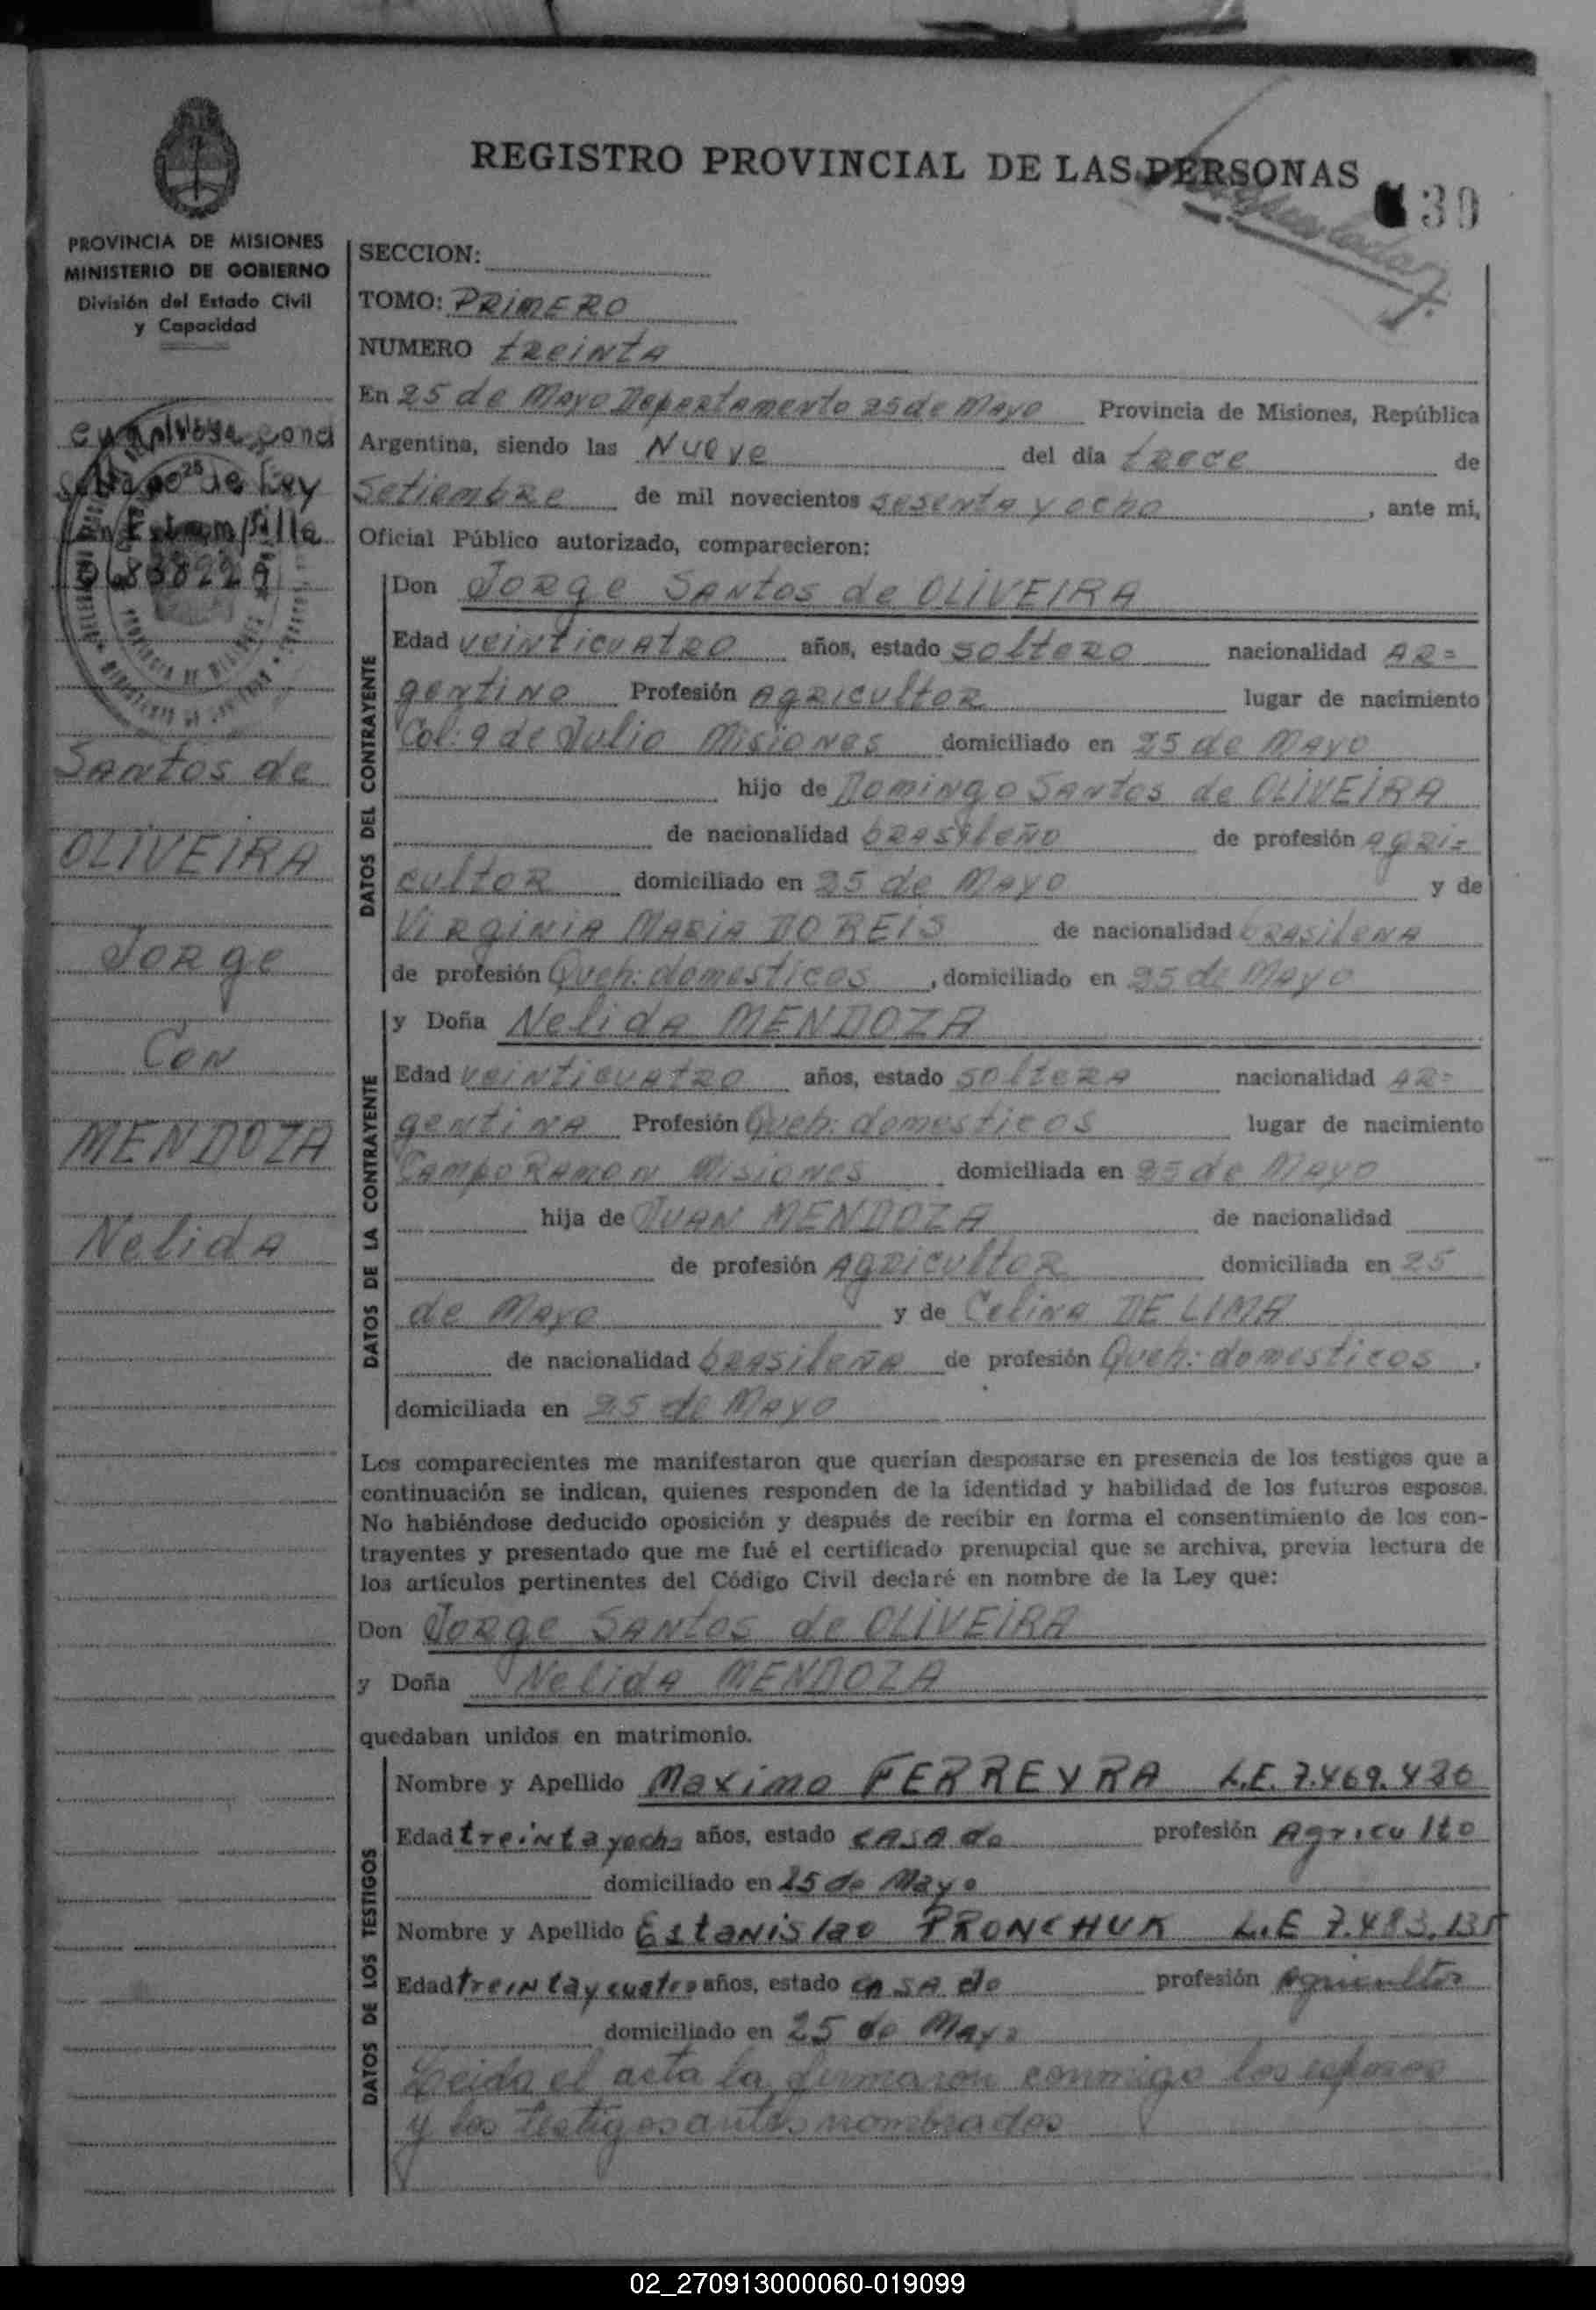 REGISTRO PROVINCIAL DE LAS PERSONAS
39
PROVINCIA DE MISIONES
MINISTERIO DE GOBIERNO
División del Estado Civil
y Capacidad
SECCION:
TOMO: PRIMERO
NUMERO treinta
En 25 de Mayo Departamento 25 de Mayo Provincia de Misiones, República
Argentina, siendo las Nueve del día trece de
Setiembre de mil novecientos sesenta y ocho, ante mi,
Oficial Público autorizado, comparecieron:
de Ley
Estampilla
Santos de
OLIVEIRA
Jorge
Con
MENDOZA
Nelida
DATOS DEL CONTRAYENTE
Don Jorge Santos de OLIVEIRA
Edad veinticuatro años, estado soltero nacionalidad AR=
gentino Profesión Agricultor lugar de nacimiento
Col: 9 de Julio Misiones domiciliado en 25 de Mayo
hijo de Domingo Santos de OLIVEIRA
de nacionalidad brasileño de profesión Agri=
cultor domiciliado en 25 de Mayo y de
Virginia Maria DO REIS de nacionalidad brasilena
de profesión Queh: domesticos, domiciliado en 25 de Mayo
DATOS DE LA CONTRAYENTE
y Doña Nelida MENDOZA
Edad veinticuatro años, estado soltera nacionalidad AR=
gentina Profesión Queh: domesticos lugar de nacimiento
Campo Ramon Misiones domiciliada en 25 de Mayo
hija de Juan MENDOZA de nacionalidad
de profesión Agricultor domiciliada en 25
de Mayo y de Celina DE LIMA
de nacionalidad brasileña de profesión Queh: domesticos,
domiciliada en 25 de Mayo
Los comparecientes me manifestaron que querían desposarse en presencia de los testigos que a
continuación se indican, quienes responden de la identidad y habilidad de los futuros esposos.
No habiéndose deducido oposición y después de recibir en forma el consentimiento de los con-
trayentes y presentado que me fué el certificado prenupcial que se archiva, previa lectura de
los artículos pertinentes del Código Civil declaré en nombre de la Ley que:
Don Jorge Santos de OLIVEIRA
y Doña Nelida MENDOZA
quedaban unidos en matrimonio.
DATOS DE LOS TESTIGOS
Nombre y Apellido Maximo FERREYRA L.E. 7.469.430
Edad treinta yocho años, estado casado profesión Agriculto
domiciliado en 25 de Mayo
Nombre y Apellido Estanislao PRONCHUK L.E 7.483.135
Edad treintaycuatro años, estado casado profesión Agricultor
domiciliado en 25 de Mayo
Leida el acta la firmaron conmigo los esposos
y los testigos antes nombrados
02_270913000060-019099